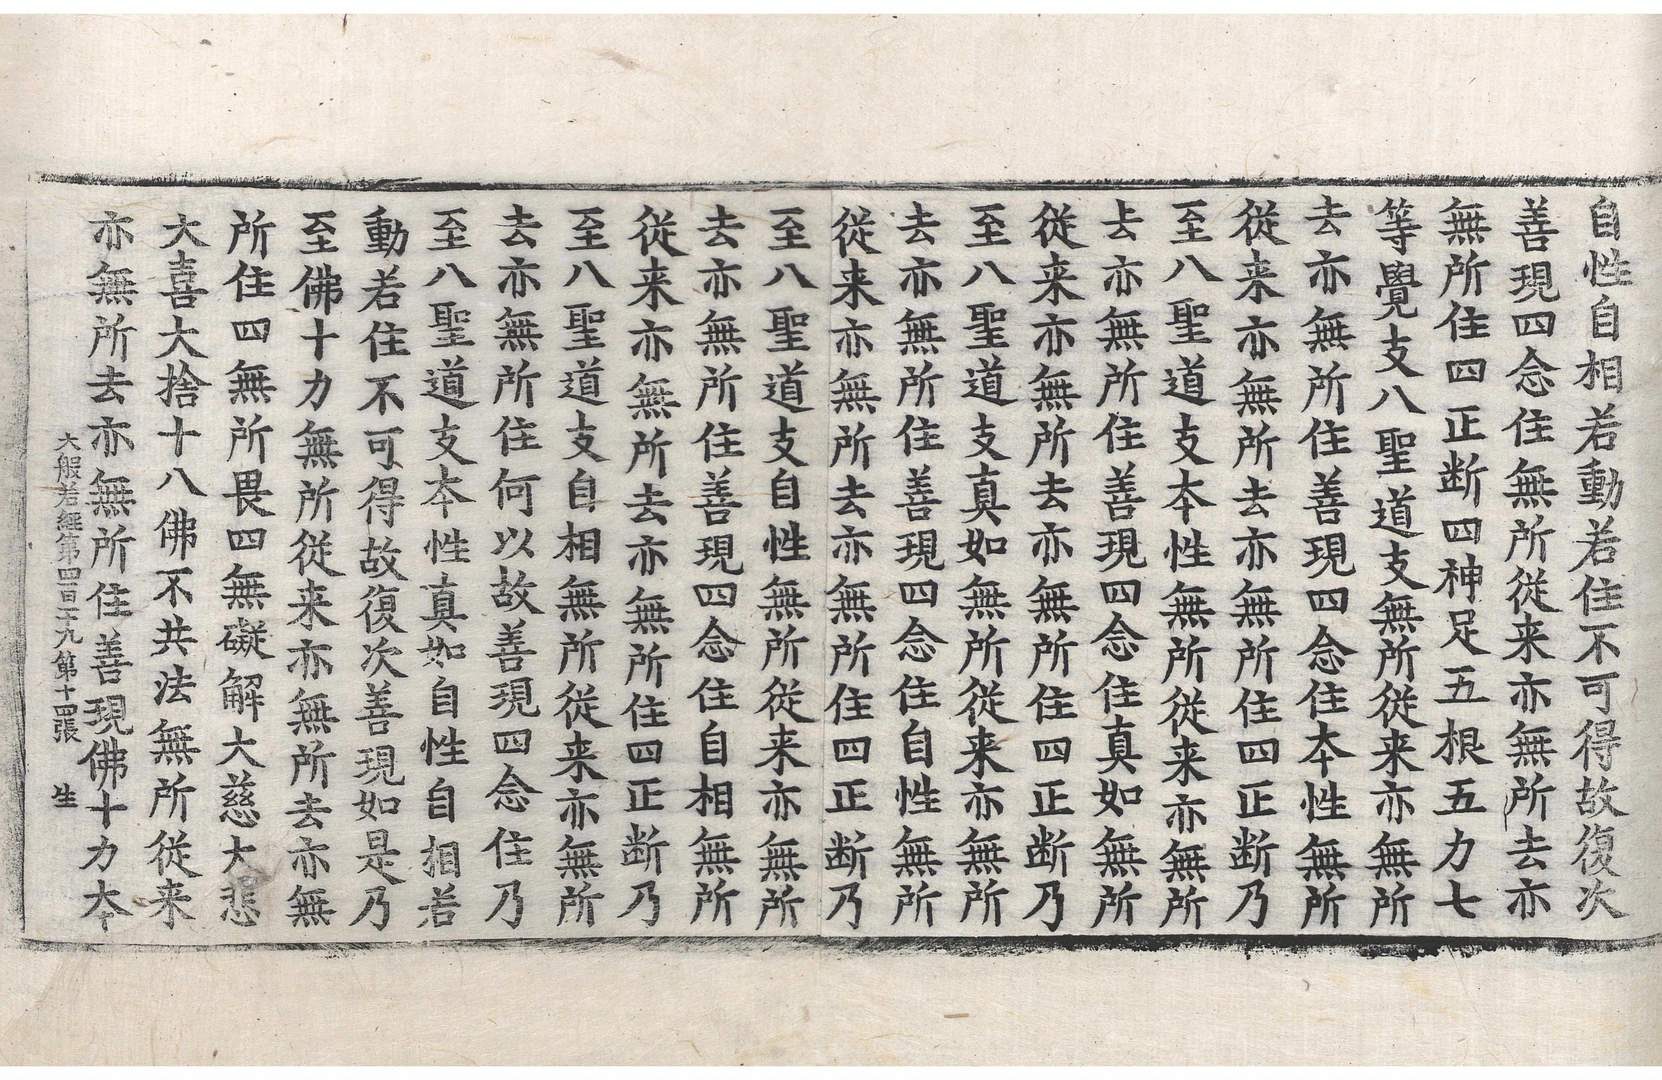 自性自相若動若住不可得故復次
善現四念住無所從来亦無所去亦
無所住四正断四神足五根五力七
等覺支八聖道支無所從来亦無所
去亦無所住善現四念住本性無所
從来亦無所去亦無所住四正断乃
至八聖道支本性無所從来亦無所
去亦無所住善現四念住真如無所
從来亦無所去亦無所住四正断乃
至八聖道支真如無所從来亦無所
去亦無所住善現四念住自性無所
從来亦無所去亦無所住四正断乃
至八聖道支自性無所從来亦無所
去亦無所住善現四念住自相無所
從来亦無所去亦無所住四正断乃
至八聖道支自相無所從来亦無所
去亦無所住何以故善現四念住乃
至八聖道支本性真如自性自相若
動若住不可得故復次善現如是乃
至佛十力無所從来亦無所去亦無
所住四無所畏四無礙解大慈大悲
大喜大捨十八佛不共法無所從来
亦無所去亦無所住善現佛十力本
大般若經第四百十九第十四張 生